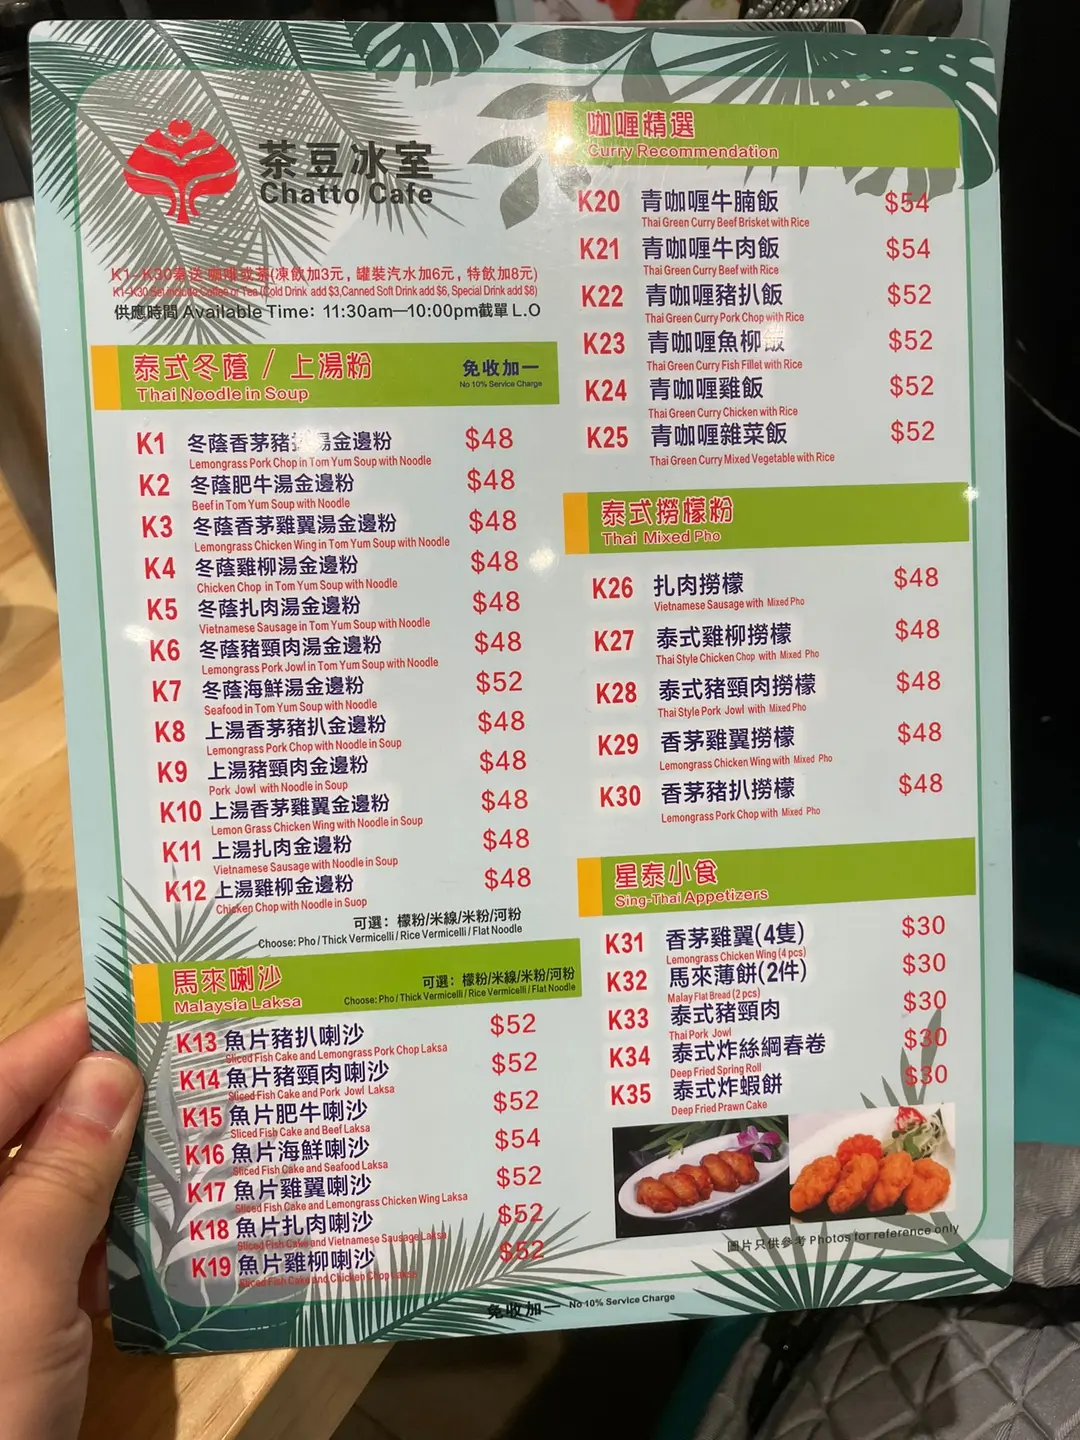 茶豆冰室
Chatto Cafe
K1-K30套送 咖啡或茶(凍飲加3元, 罐裝汽水加6元, 特飲加8元)
K1-K30 Set include Coffee or Tea (Cold Drink add $3,Canned Soft Drink add $6, Special Drink add $8)
供應時間 Available Time: 11:30am—10:00pm截單 L.O
泰式冬蔭 / 上湯粉 免收加一
Thai Noodle in Soup No 10% Service Charge
K1 冬蔭香茅豬扒湯金邊粉 $48
Lemongrass Pork Chop in Tom Yum Soup with Noodle
K2 冬蔭肥牛湯金邊粉 $48
Beef in Tom Yum Soup with Noodle
K3 冬蔭香茅雞翼湯金邊粉 $48
Lemongrass Chicken Wing in Tom Yum Soup with Noodle
K4 冬蔭雞柳湯金邊粉 $48
Chicken Chop in Tom Yum Soup with Noodle
K5 冬蔭扎肉湯金邊粉 $48
Vietnamese Sausage in Tom Yum Soup with Noodle
K6 冬蔭豬頸肉湯金邊粉 $48
Lemongrass Pork Jowl in Tom Yum Soup with Noodle
K7 冬蔭海鮮湯金邊粉 $52
Seafood in Tom Yum Soup with Noodle
K8 上湯香茅豬扒金邊粉 $48
Lemongrass Pork Chop with Noodle in Soup
K9 上湯豬頸肉金邊粉 $48
Pork Jowl with Noodle in Soup
K10 上湯香茅雞翼金邊粉 $48
Lemon Grass Chicken Wing with Noodle in Soup
K11 上湯扎肉金邊粉 $48
Vietnamese Sausage with Noodle in Soup
K12 上湯雞柳金邊粉 $48
Chicken Chop with Noodle in Suop
可選：檬粉/米線/米粉/河粉
Choose: Pho / Thick Vermicelli / Rice Vermicelli / Flat Noodle
馬來喇沙 可選：檬粉/米線/米粉/河粉
Malaysia Laksa Choose: Pho / Thick Vermicelli / Rice Vermicelli / Flat Noodle
K13 魚片豬扒喇沙 $52
Sliced Fish Cake and Lemongrass Pork Chop Laksa
K14 魚片豬頸肉喇沙 $52
Sliced Fish Cake and Pork Jowl Laksa
K15 魚片肥牛喇沙 $52
Sliced Fish Cake and Beef Laksa
K16 魚片海鮮喇沙 $54
Sliced Fish Cake and Seafood Laksa
K17 魚片雞翼喇沙 $52
Sliced Fish Cake and Lemongrass Chicken Wing Laksa
K18 魚片扎肉喇沙 $52
Sliced Fish Cake and Vietnamese Sausage Laksa
K19 魚片雞柳喇沙 $52
Sliced Fish Cake and Chicken Chop Laksa
咖喱精選
Curry Recommendation
K20 青咖喱牛腩飯 $54
Thai Green Curry Beef Brisket with Rice
K21 青咖喱牛肉飯 $54
Thai Green Curry Beef with Rice
K22 青咖喱豬扒飯 $52
Thai Green Curry Pork Chop with Rice
K23 青咖喱魚柳飯 $52
Thai Green Curry Fish Fillet with Rice
K24 青咖喱雞飯 $52
Thai Green Curry Chicken with Rice
K25 青咖喱雜菜飯 $52
Thai Green Curry Mixed Vegetable with Rice
泰式撈檬粉
Thai Mixed Pho
K26 扎肉撈檬 $48
Vietnamese Sausage with Mixed Pho
K27 泰式雞柳撈檬 $48
Thai Style Chicken Chop with Mixed Pho
K28 泰式豬頸肉撈檬 $48
Thai Style Pork Jowl with Mixed Pho
K29 香茅雞翼撈檬 $48
Lemongrass Chicken Wing with Mixed Pho
K30 香茅豬扒撈檬 $48
Lemongrass Pork Chop with Mixed Pho
星泰小食
Sing-Thai Appetizers
K31 香茅雞翼(4隻) $30
Lemongrass Chicken Wing (4 pcs)
K32 馬來薄餅(2件) $30
Malay Flat Bread (2 pcs)
K33 泰式豬頸肉 $30
Thai Pork Jowl
K34 泰式炸絲網春卷 $30
Deep Fried Spring Roll
K35 泰式炸蝦餅 $30
Deep Fried Prawn Cake
圖片只供參考 Photos for reference only
免收加一 No 10% Service Charge